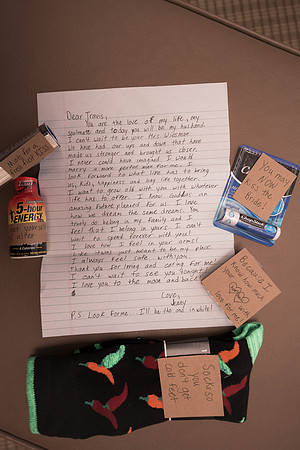 Dear Travis,
You are the love of my life, my
soulmate and today you will be my husband.
I can't wait to be your Mrs. Wiseman
We have had our ups and down that have
made us stronger and brought us closer.
I never could have imagined I would
marry a more perfect man for me. I
look forward to what life has to bring
us, kids, happiness and a big life together.
I want to grow old with you with whatever
life has to offer. I know God has an
amazing future planned for us. I love
how we dream the same dreams. You
truly do belong in my family and I
feel that I belong in yours. I can't
want to spend forever with you!
I love how I feel in your arms!
Like it was just meant to be my place.
I always feel safe with you.
Thank you for loving and caring for me!
I can't wait to see you tonight!
I love you to the moon and back!
Love,
Jenny
P.S. Look for me. I'll be the one in white!
5-hour
ENERGY
So you may
NOW
kiss the
bride!
Because I
know how much
you
with
me
Socks so
you
don't get
cold feet